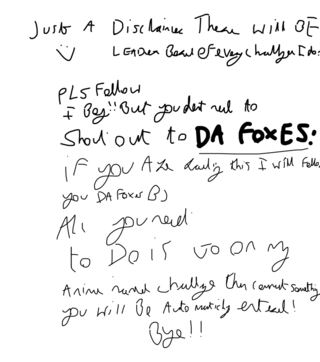 Just A Disclaimer There will BE
LEADER Board of every challenge I do:
PLS Follow
I Beg!! But you dont need to
Shout out to DA FOXES:
if you Are doing this I will follow
you DA Foxes B)
All you need
to Do is Go on my
Anime named challenge then comment something
you will Be Automaticly entered!
Bye!!